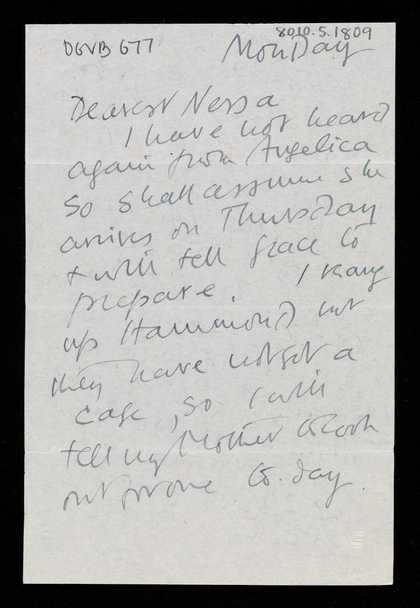 DGVB G77
8010.5.1809
Monday
Dearest Nessa
I have not heard
again from Angelica
so shall assume she
arrives on Thursday
& will tell Grace to
prepare. I rang
up Hammond but
they have not got a
case, so I will
tell my Mother to look
out for one to-day.